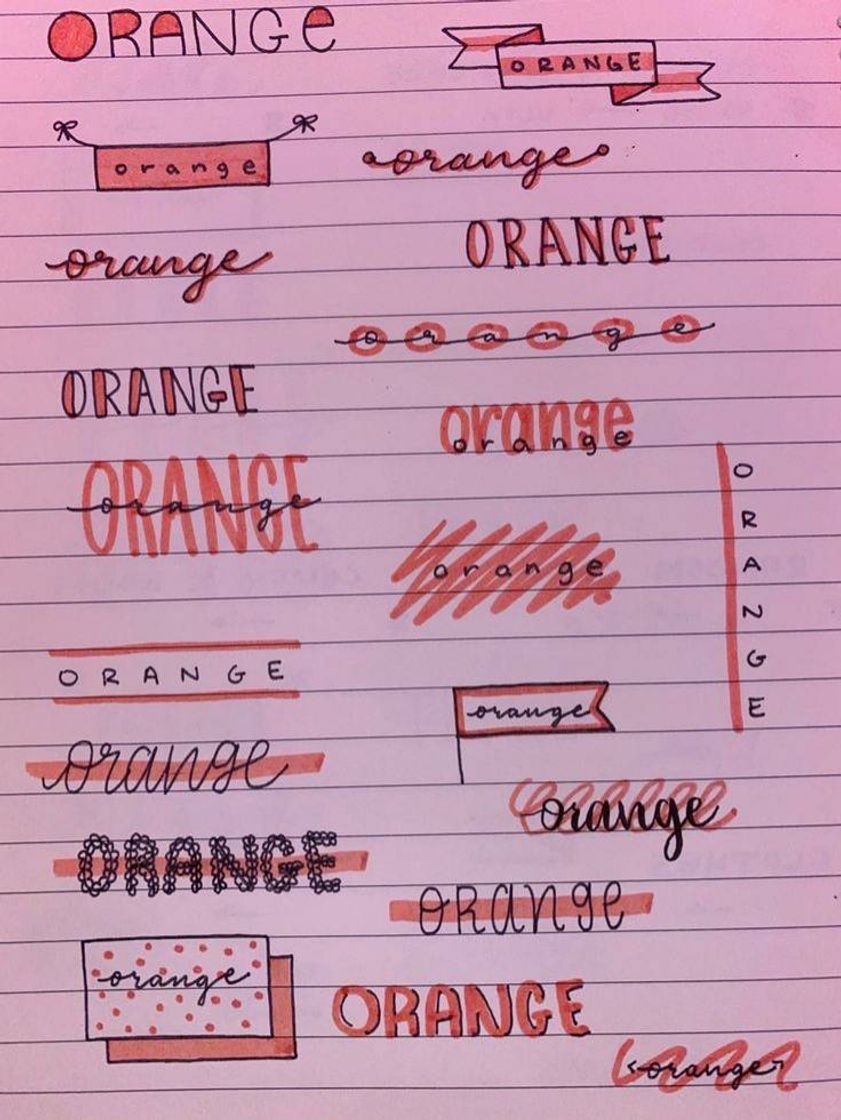 ORANGe
ORANGE
orange
orange
orange
ORANGE
orange
ORANGE
orange
orange
ORANGE
orange
ORANGE
orange
ORANGE
orange
orange
orange
ORANGE
oRange
orange
ORANGE
orange